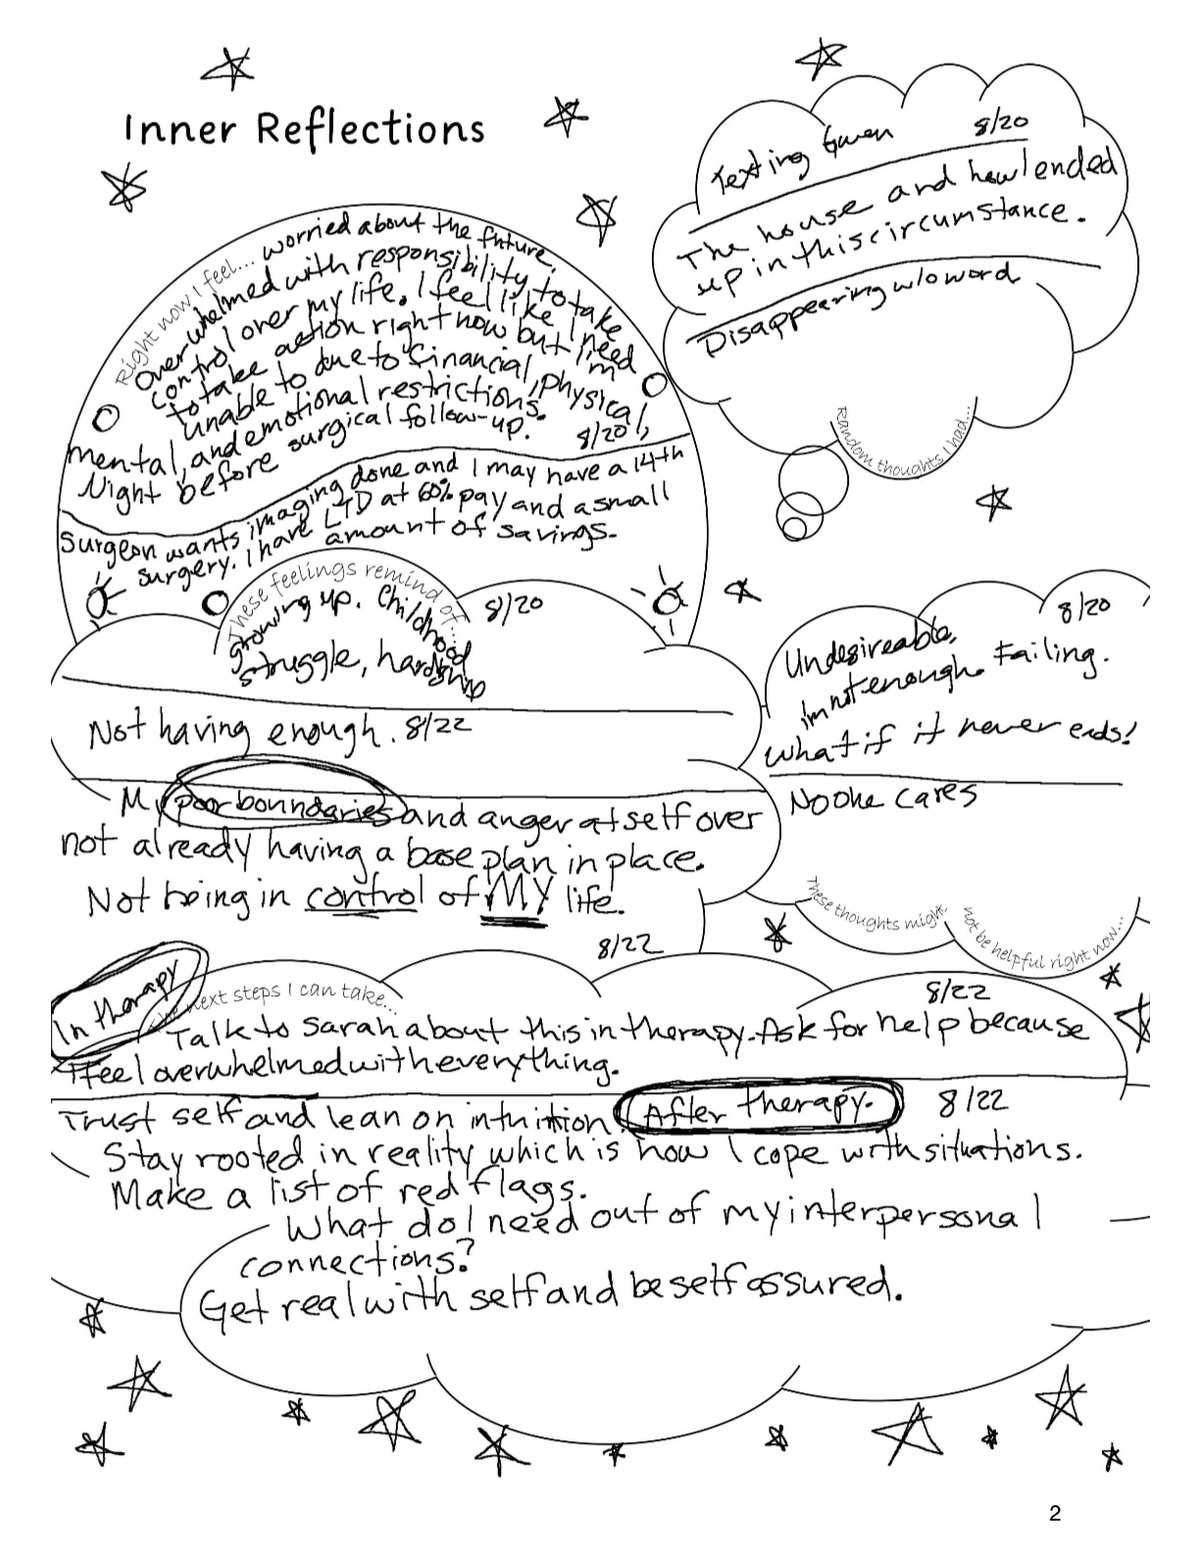 Inner Reflections
Right now I feel... worried about the future.
Overwhelmed with responsibility, to take
control over my life. I feel like I need
to take action right now but I'm
unable to due to financial, physical,
mental, and emotional restrictions.
Night before surgical follow-up. 8/20
Surgeon wants imaging done and I may have a 14th
surgery. I have LTD at 60% pay and a small
amount of savings.
Texting Gwen 8/20
The house and how I ended
up in this circumstance.
Disappearing w/o word
Random thoughts I had...
These feelings remind of... 8/20
growing up. Childhood
struggle, hardship
Not having enough. 8/22
My poor bonndaries and anger at self over
not already having a base plan in place.
Not being in control of MY life.
8/22
8/20
Undesireable,
im not enough. Failing.
What if it never ends!
No one cares
These thoughts might not be helpful right now...
In therapy
next steps I can take... 8/22
Talk to Sarah about this in therapy. Ask for help because
I feel overwhelmed with everything.
Trust self and lean on intuition. After therapy. 8/22
Stay rooted in reality which is how I cope with situations.
Make a list of red flags.
What do I need out of my interpersonal
connections?
Get real with self and be self assured.
2